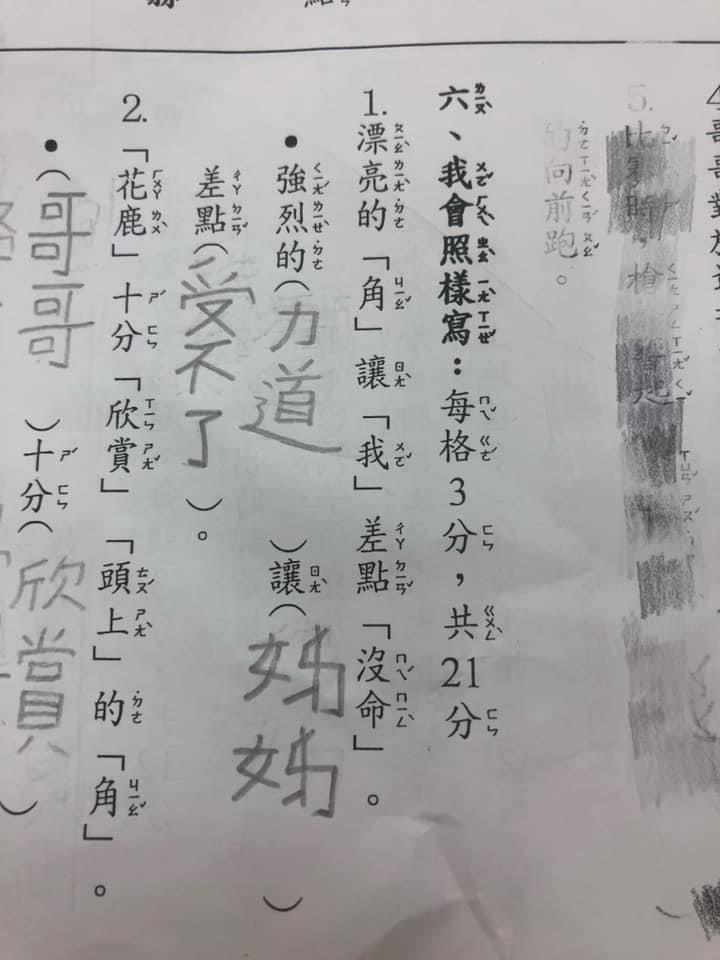 哥哥對
5. 比賽時，槍
的向前跑。
六、我會照樣寫：每格3分，共21分
1. 漂亮的「角」讓「我」差點「沒命」。
•強烈的(力道)讓(姊姊)
差點(受不了)。
2.「花鹿」十分「欣賞」「頭上」的「角」。
•(哥哥)十分(欣賞)